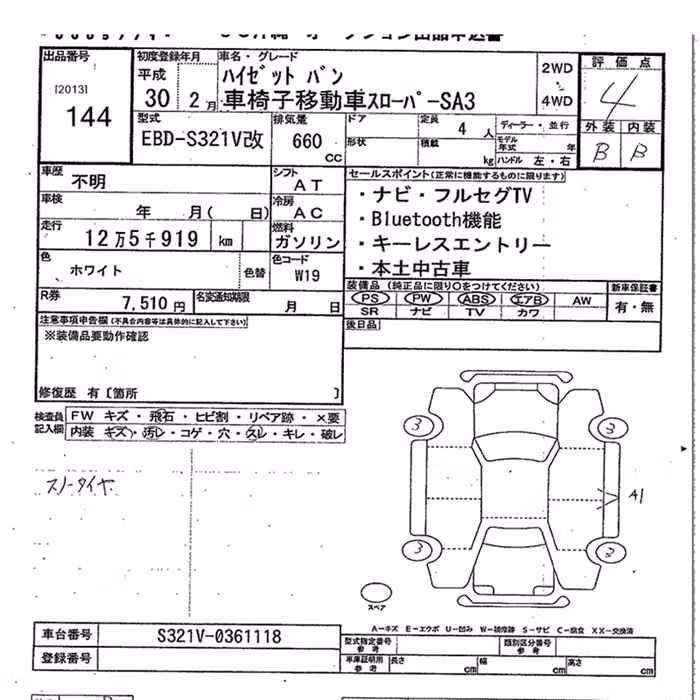 出品番号
[2013]
144
初度登録年月
平成
30 2 月
車名・グレード
ﾊｲｾﾞｯﾄ ﾊﾞﾝ
車椅子移動車ｽﾛｰﾊﾟｰSA3
2WD
4WD
評価点
4
外装 内装
B B
型式
EBD-S321V改
排気量
660
CC
ドア
形状
定員
4 人
積載
kg
ディーラー・並行
モデル年式 年
ハンドル 左・右
車歴
不明
シフト
AT
車検
年 月( 日)
冷房
AC
走行
12万5千919 km
燃料
ガソリン
色
ホワイト
色替
色コード
W19
R券
7,510 円
名変通知期限
月 日
セールスポイント(正常に機能するものに限ります)
・ナビ・フルセグTV
・Bluetooth機能
・キーレスエントリー
・本土中古車
装備品 (純正品に限り○をつけてください)
PS PW ABS エアB AW
SR ナビ TV カワ
新車保証書
有・無
後日品
注意事項申告欄(不具合内容等は具体的に記入して下さい)
※装備品要動作確認
修復歴 有〔箇所 〕
検査員
記入欄
FW キズ・飛石・ヒビ割・リペア跡・×要
内装 キズ・汚レ・コゲ・穴・スレ・キレ・破レ
スノータイヤ
3 3
A1
3 3
スペア
A－キズ E－エクボ U－凹み W－補修跡 S－サビ C－腐食 XX－交換済
車台番号
S321V-0361118
登録番号
型式指定番号
参考
類別区分番号
参考
車庫証明用
参考
長さ cm 幅 cm 高さ cm